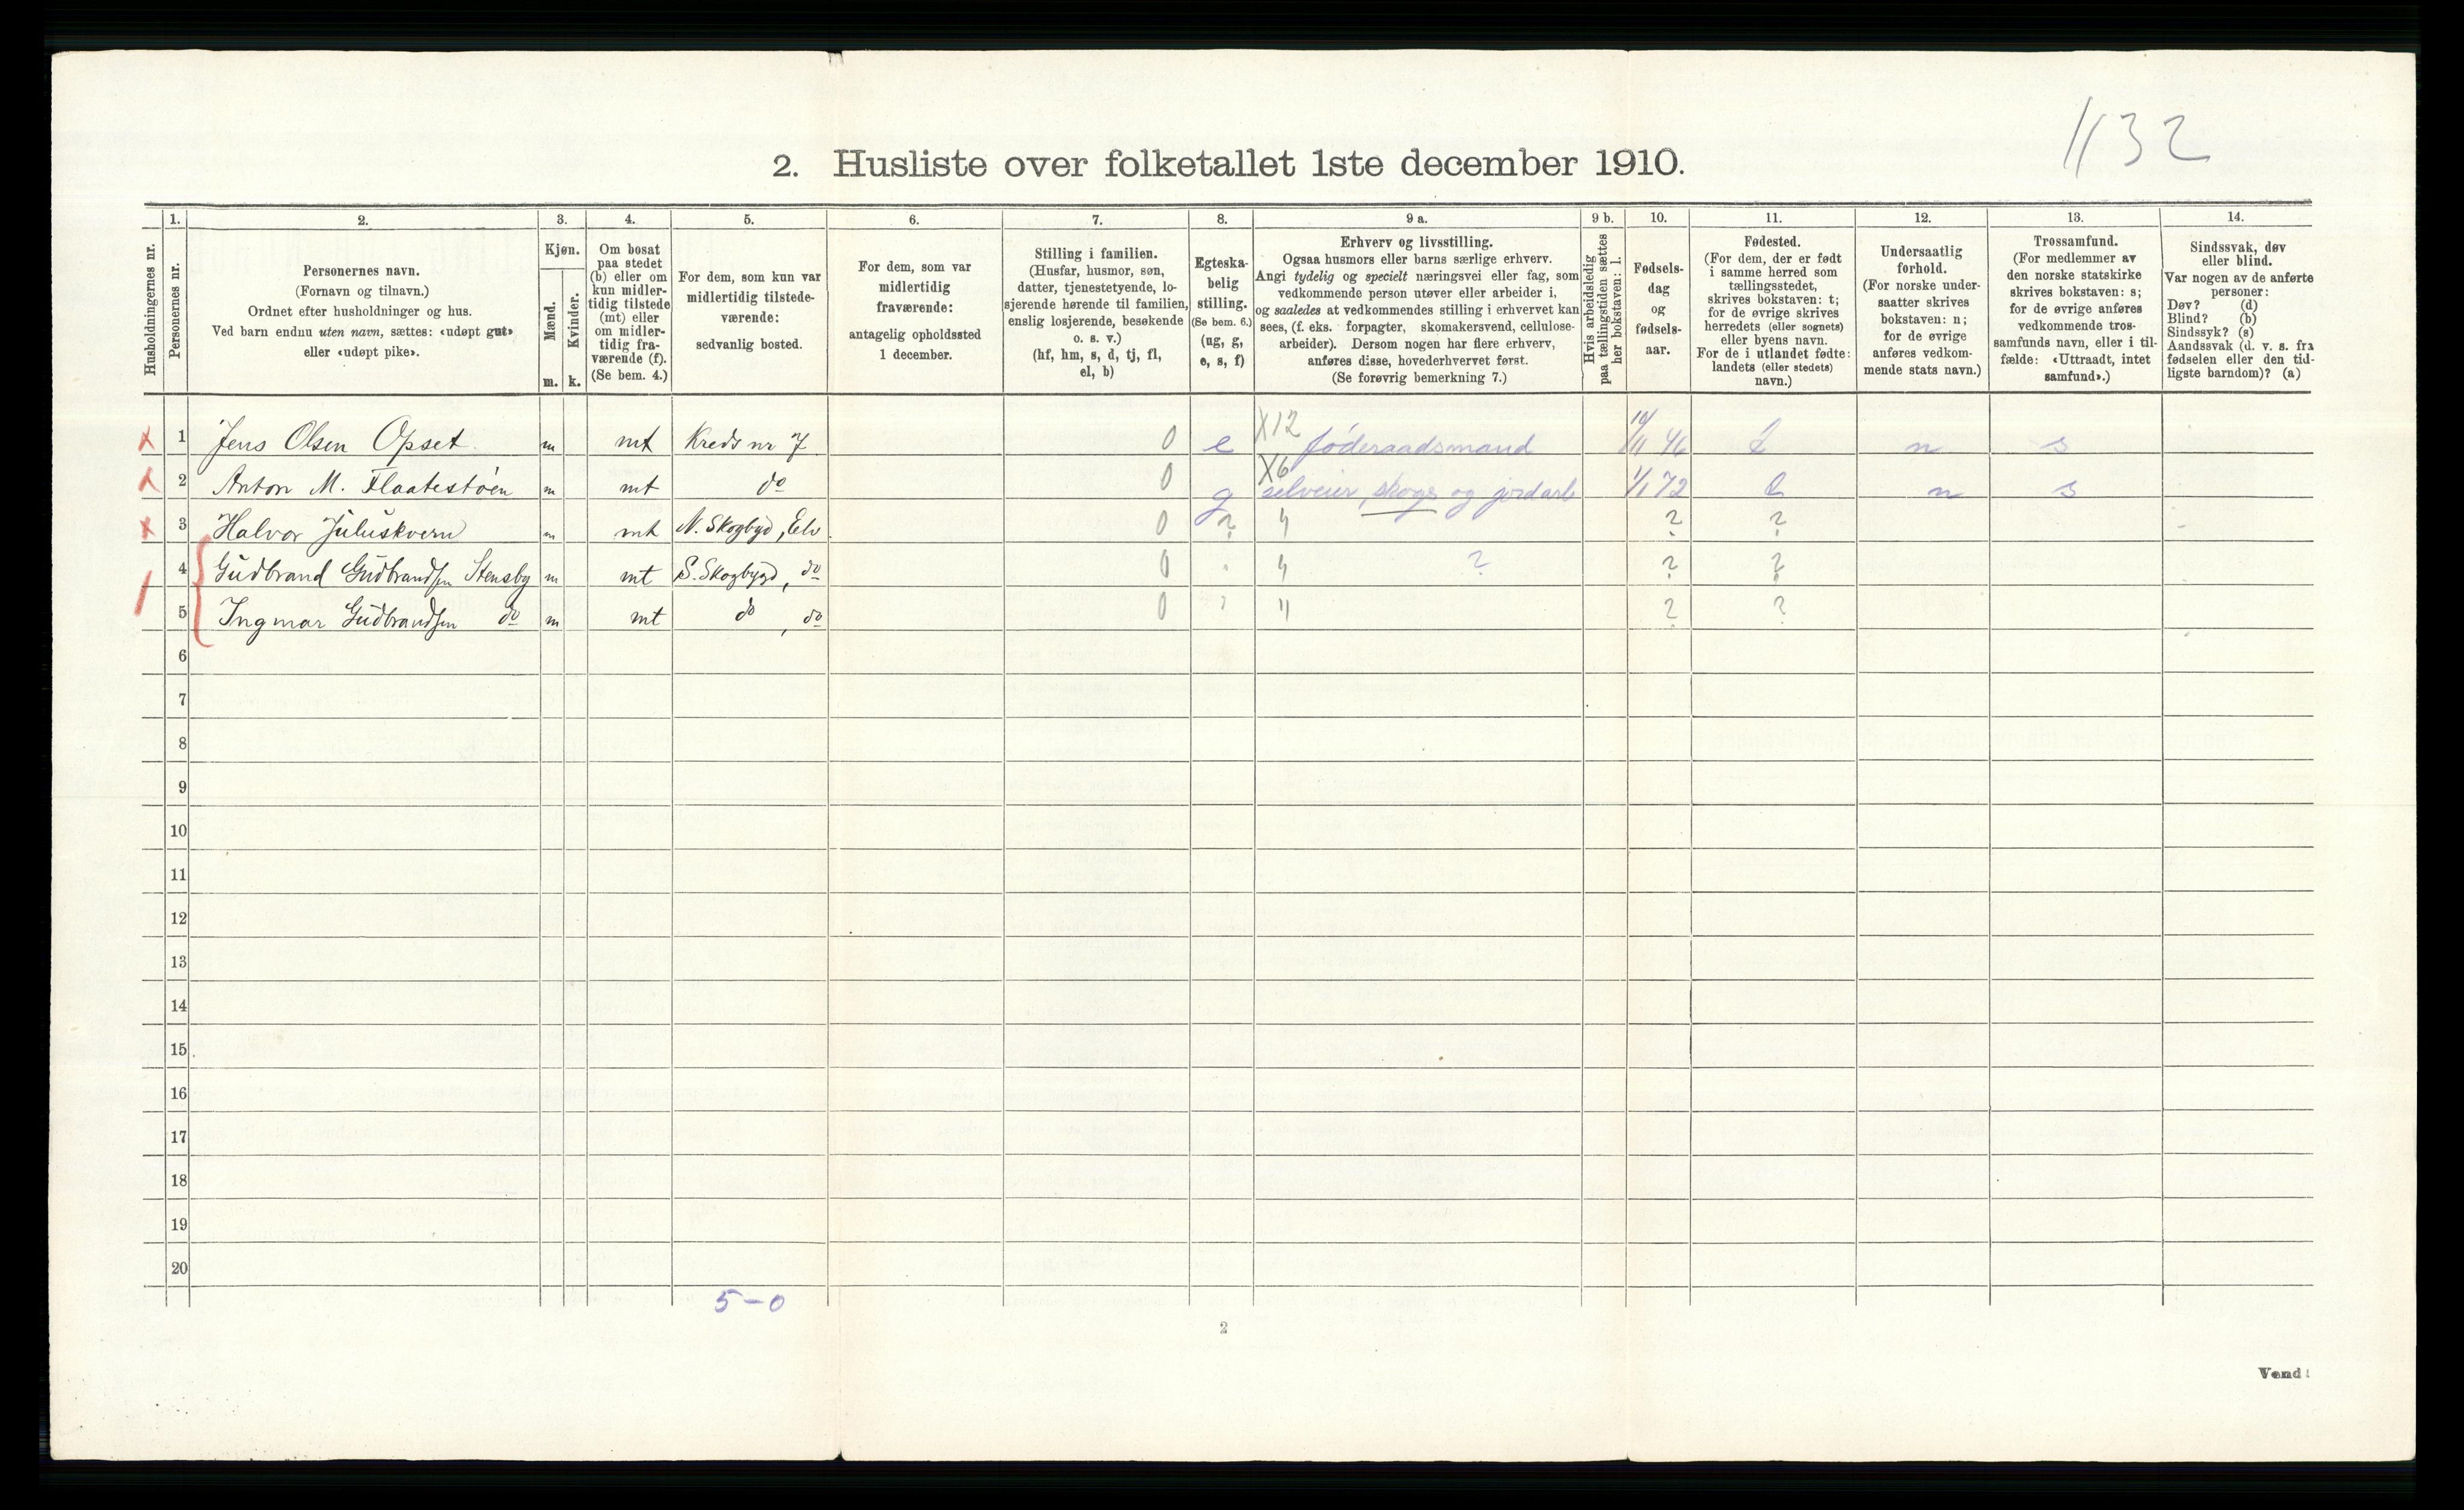 1132
2. Husliste over folketallet 1ste december 1910.
1. 2. 3. 4. 5. 6. 7. 8. 9 a. 9 b. 10. 11. 12. 13. 14.
Husholdningernes nr.
Personernes nr.
Personernes navn.
(Fornavn og tilnavn.)
Ordnet efter husholdninger og hus.
Ved barn endnu uten navn, sættes: «udøpt gut»
eller «udøpt pike».
Kjøn.
Mænd.
Kvinder.
m. k.
Om bosat
paa stedet
(b) eller om
kun midler-
tidig tilstede
(mt) eller
om midler-
tidig fra-
værende (f).
(Se bem. 4.)
For dem, som kun var
midlertidig tilstede-
værende:
sedvanlig bosted.
For dem, som var
midlertidig
fraværende:
antagelig opholdssted
1 december.
Stilling i familien.
(Husfar, husmor, søn,
datter, tjenestetyende, lo-
sjerende hørende til familien,
enslig losjerende, besøkende
o. s. v.)
(hf, hm, s, d, tj, fl,
el, b)
Egteska-
belig
stilling.
(Se bem. 6.)
(ug, g,
e, s, f)
Erhverv og livsstilling.
Ogsaa husmors eller barns særlige erhverv.
Angi tydelig og specielt næringsvei eller fag, som
vedkommende person utøver eller arbeider i,
og saaledes at vedkommendes stilling i erhvervet kan
sees, (f. eks. forpagter, skomakersvend, cellulose-
arbeider). Dersom nogen har flere erhverv,
anføres disse, hovederhvervet først.
(Se forøvrig bemerkning 7.)
Hvis arbeidsledig
paa tællingstiden sættes
her bokstaven: l.
Fødsels-
dag
og
fødsels-
aar.
Fødested.
(For dem, der er født
i samme herred som
tællingsstedet,
skrives bokstaven: t;
for de øvrige skrives
herredets (eller sognets)
eller byens navn.
For de i utlandet fødte:
landets (eller stedets)
navn.)
Undersaatlig
forhold.
(For norske under-
saatter skrives
bokstaven: n;
for de øvrige
anføres vedkom-
mende stats navn.)
Trossamfund.
(For medlemmer av
den norske statskirke
skrives bokstaven: s;
for de øvrige anføres
vedkommende tros-
samfunds navn, eller i til-
fælde: «Uttraadt, intet
samfund».)
Sindssvak, døv
eller blind.
Var nogen av de anførte
personer:
Døv? (d)
Blind? (b)
Sindssyk? (s)
Aandssvak (d. v. s. fra
fødselen eller den tid-
ligste barndom)? (a)
X 1 Jens Olsen Opset m mt Kreds nr 7 0 e X12 føderaadsmand 10/11 46 t n s
X 2 Anton M. Flaatestøen m mt do 0 g X6 selveier, skogs og jordarb 1/1 72 t n s
X 3 Halvor Juluskvern m mt N. Skogbyd, Elv. 0 ? " ? ?
4 Gudbrand Gudbrandsen Stensby m mt S. Skogbygd, do 0 " ? ? ?
5 Ingmar Gudbrandsen do m mt do, do 0 " ? ?
6
7
8
9
10
11
12
13
14
15
16
17
18
19
20
5-0
2
Vend!